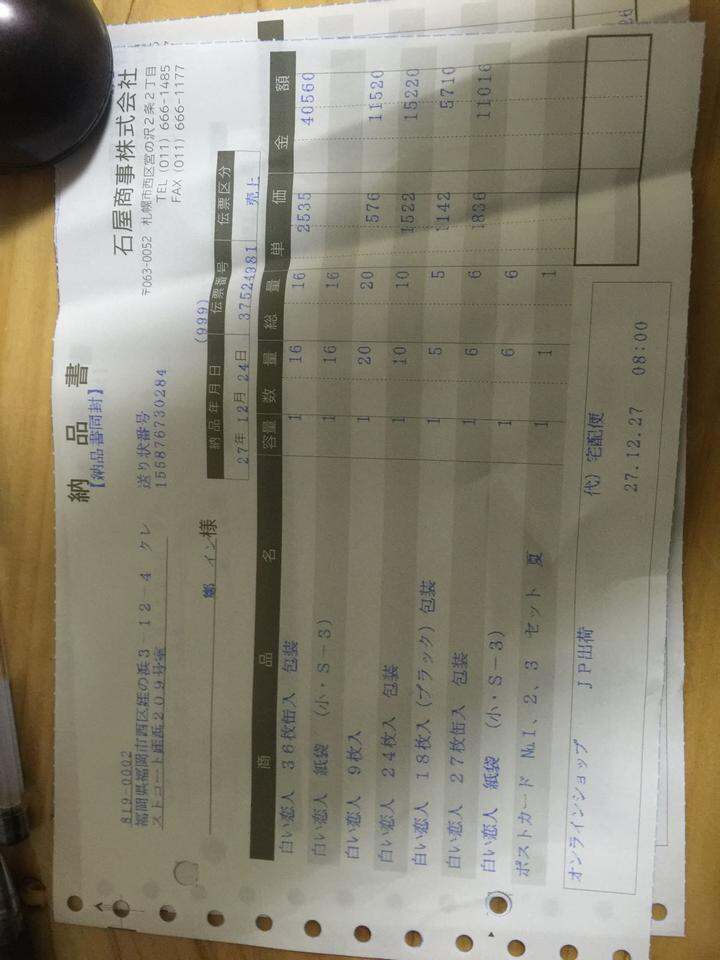 納品書
【納品書同封】
石屋商事株式会社
〒063-0052 札幌市西区宮の沢2条2丁目
TEL (011) 666-1485
FAX (011) 666-1177
819-0002
福岡県福岡市西区姪の浜3-12-4 クレ
ストコート姪浜209号室
送り状番号
155876730284
イン様
(999)
納品年月日 伝票番号 伝票区分
27年 12月 24日 37524981 売上
商品名 容量 数量 総量 単価 金額
白い恋人 36枚缶入 包装 1 16 16 2535 40560
白い恋人 紙袋 (小・S-3) 1 16 16
白い恋人 9枚入 1 20 20 576 11520
白い恋人 24枚入 包装 1 10 10 1522 15220
白い恋人 18枚入(ブラック) 包装 1 5 5 1142 5710
白い恋人 27枚缶入 包装 1 6 6 1836 11016
白い恋人 紙袋 (小・S-3) 1 6 6
ポストカード №1、2、3 セット 夏 1 1 1
オンラインショップ JP出荷 代)宅配便
27.12.27 08:00